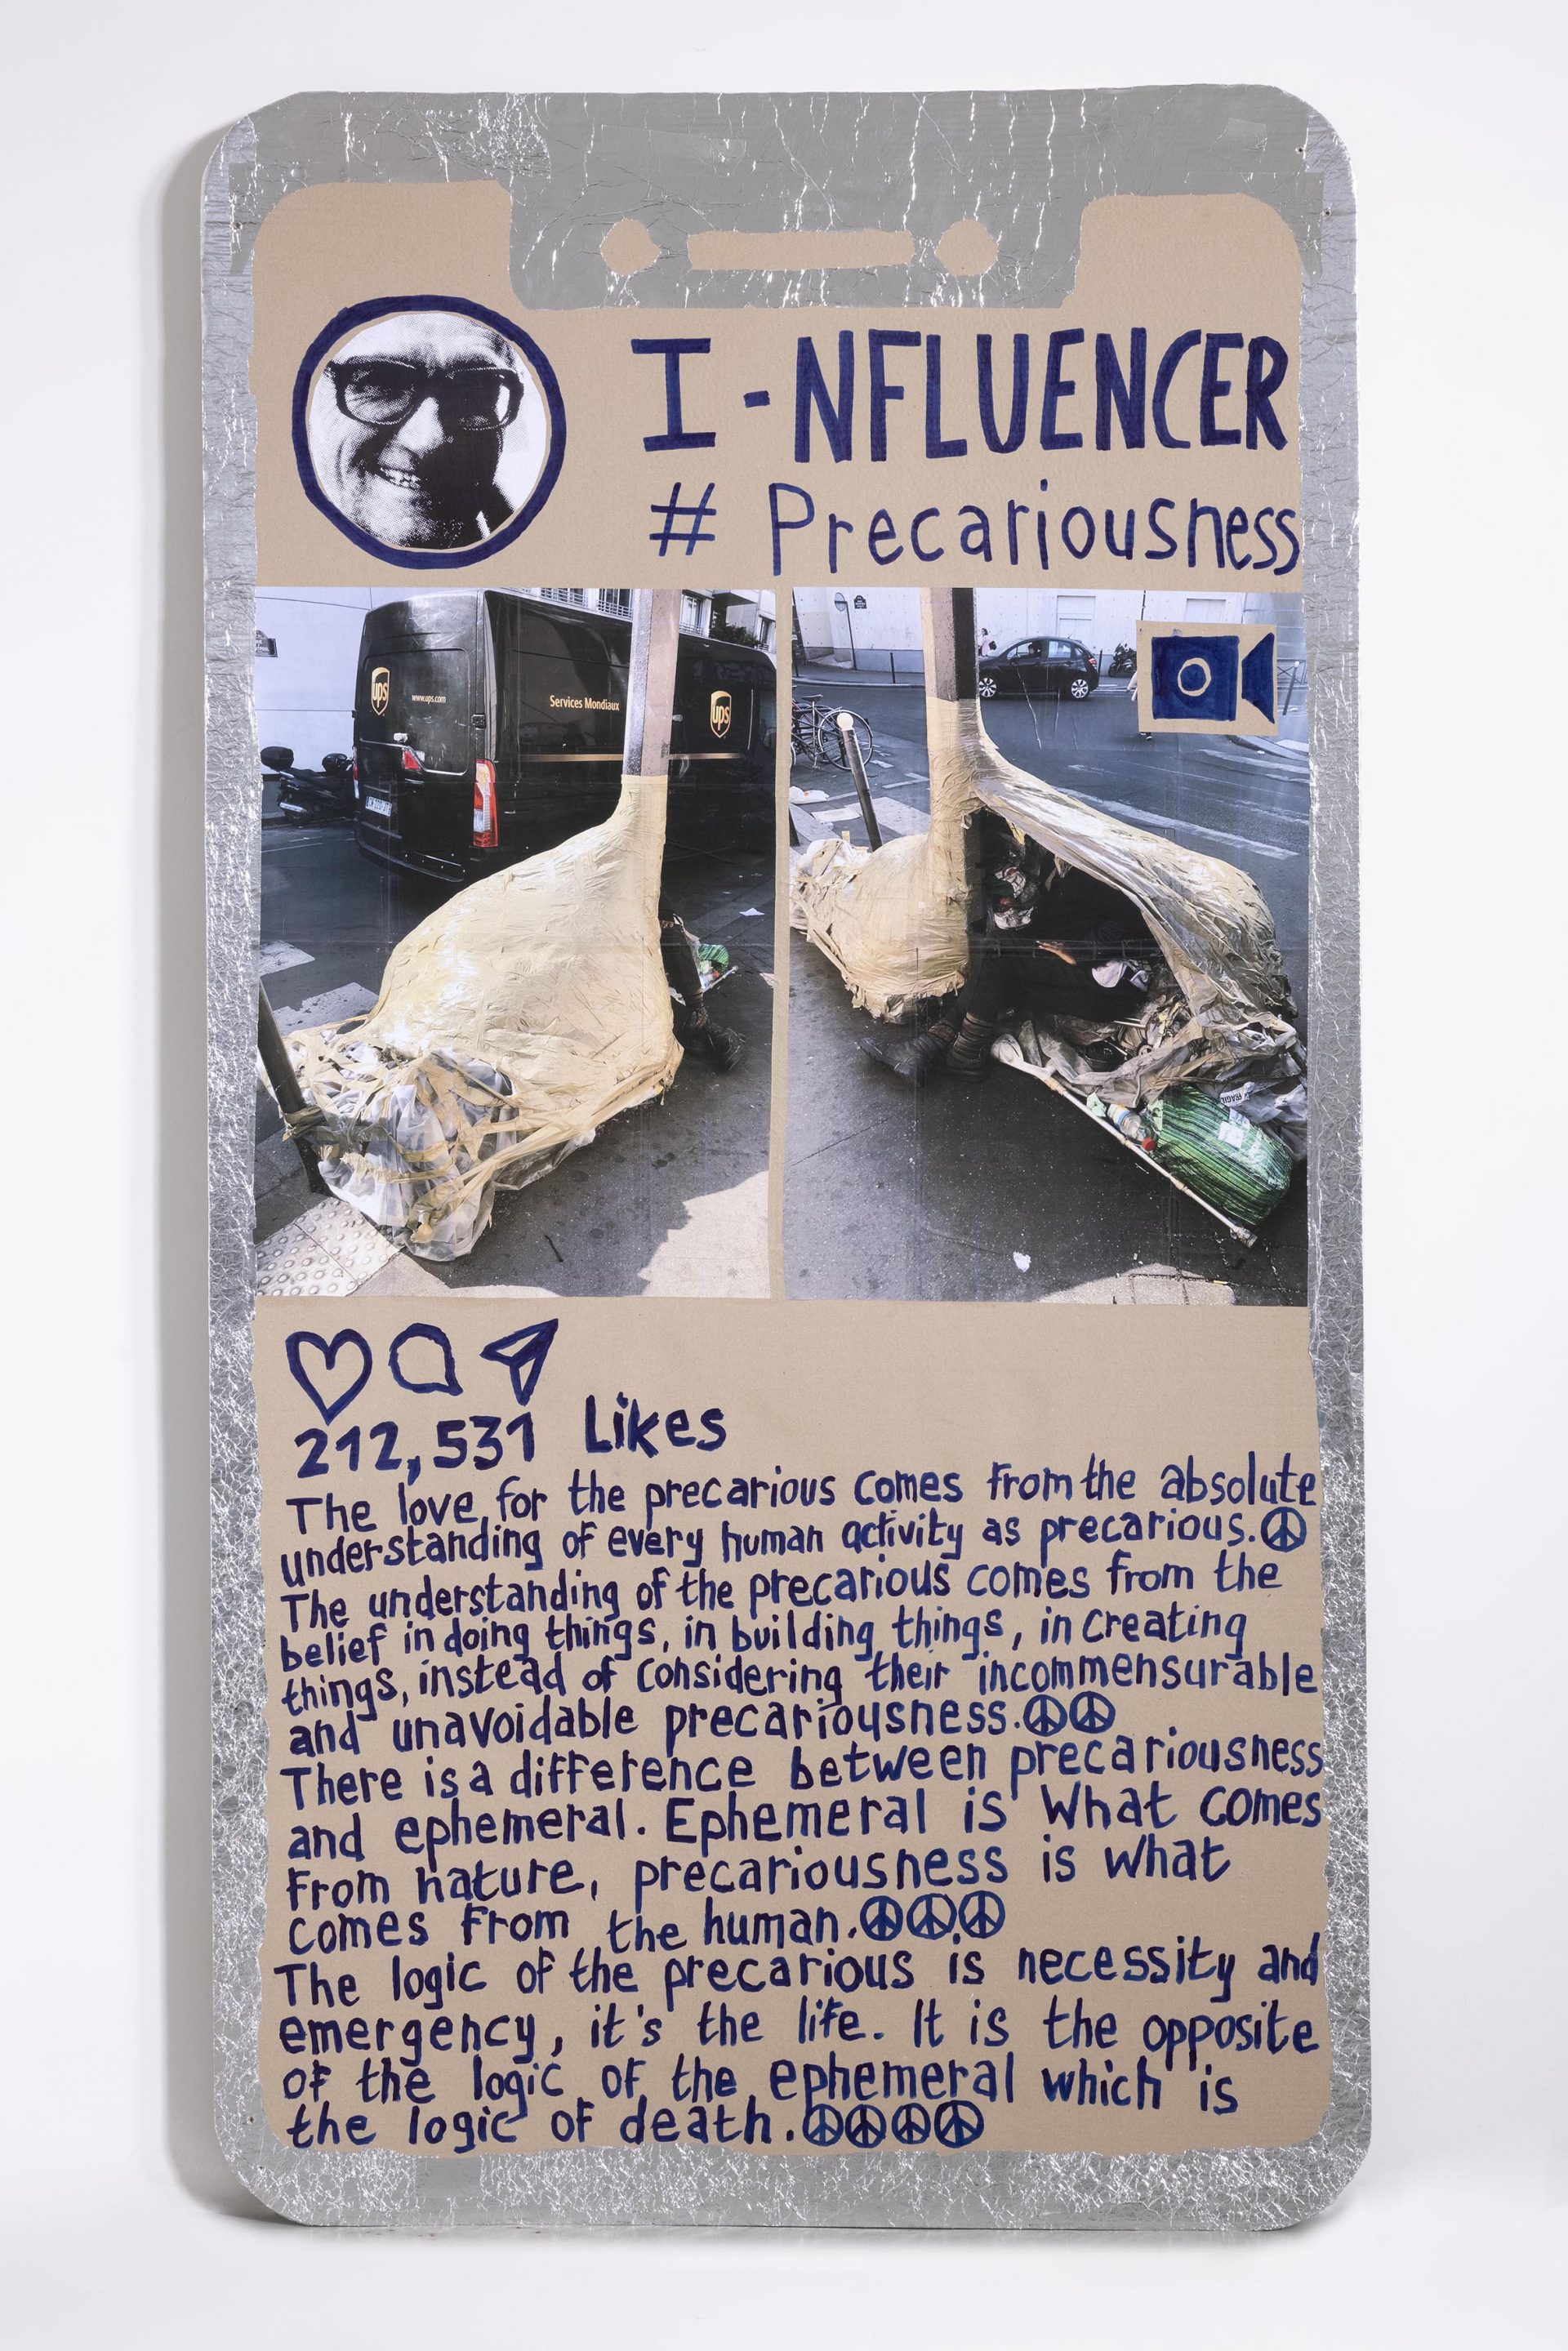 I-NFLUENCER
# Precariousness
ups
www.ups.com
Services Mondiaux
ups
FRAGILE
212,531 Likes
The love for the precarious comes from the absolute
understanding of every human activity as precarious.☮
The understanding of the precarious comes from the
belief in doing things, in building things, in creating
things, instead of considering their incommensurable
and unavoidable precariousness.☮☮
There is a difference between precariousness
and ephemeral. Ephemeral is what comes
from nature, precariousness is what
comes from the human.☮☮☮
The logic of the precarious is necessity and
emergency, it's the life. It is the opposite
of the logic of the ephemeral which is
the logic of death.☮☮☮☮